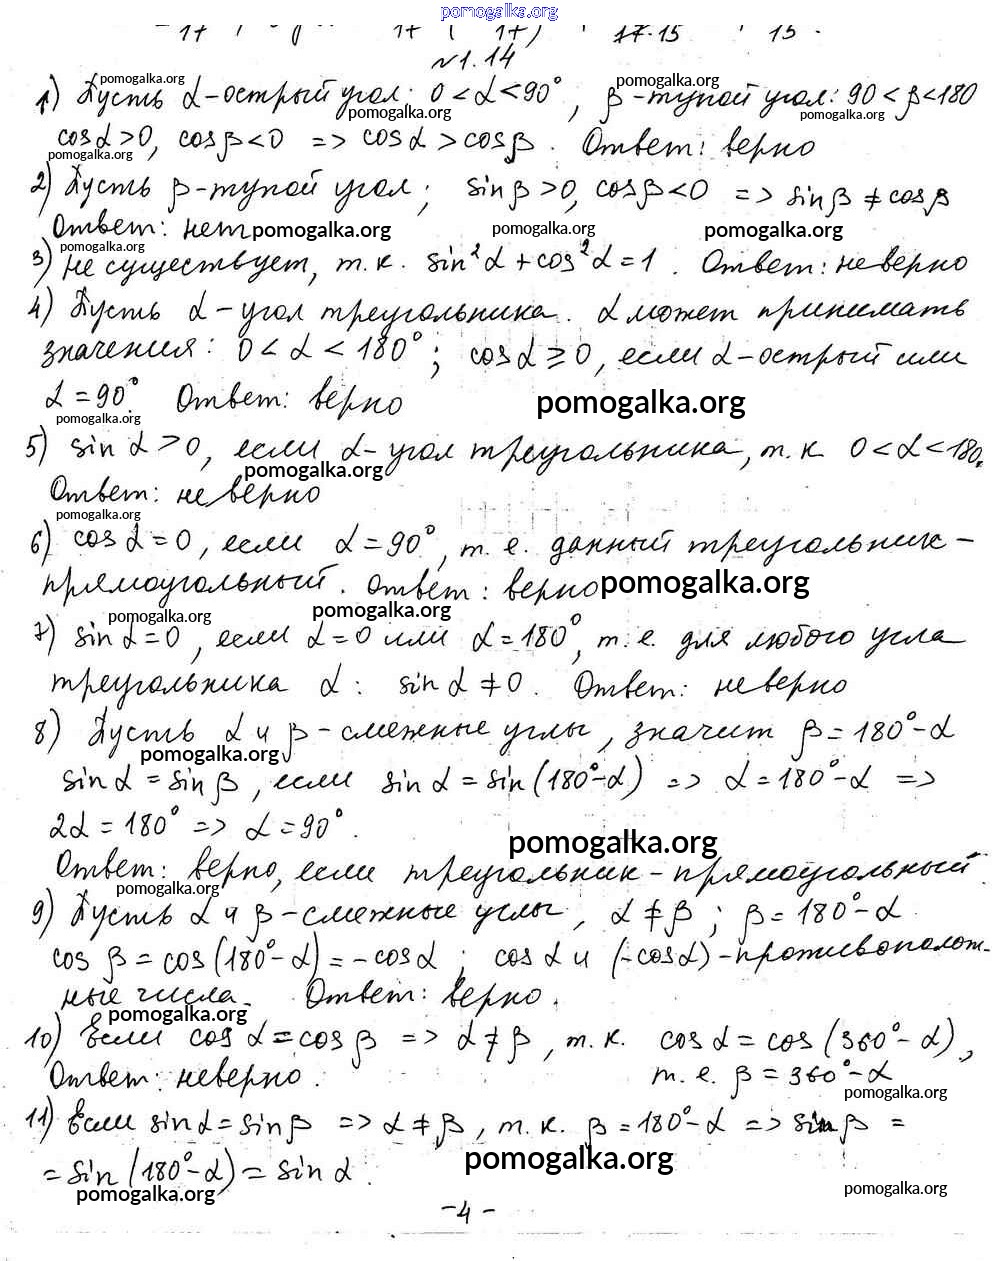 pomogalka.org
17·15
№1.14
1) Пусть α-острый угол: 0<α<90°, β-тупой угол: 90<β<180
cosα>0, cosβ<0 => cosα>cosβ. Ответ: верно
2) Пусть β-тупой угол; sinβ>0, cosβ<0 => sinβ≠cosβ
Ответ: нет
3) Не существует, т.к. sin²α+cos²α=1. Ответ: неверно
4) Пусть α-угол треугольника. α может принимать
значения: 0<α<180°; cosα≥0, если α-острый или
α=90°. Ответ: верно
5) sinα>0, если α-угол треугольника, т.к 0<α<180.
Ответ: неверно
6) cosα=0, если α=90°, т.е. данный треугольник-
прямоугольный. Ответ: верно
7) sinα=0, если α=0 или α=180°, т.е. для любого угла
треугольника α: sinα≠0. Ответ: неверно
8) Пусть α и β-смежные углы, значит β=180°-α
sinα=sinβ, если sinα=sin(180°-α) => α=180°-α =>
2α=180° => α=90°.
Ответ: верно, если треугольник-прямоугольный.
9) Пусть α и β-смежные углы, α≠β; β=180°-α.
cosβ=cos(180°-α)=-cosα; cosα и (-cosα)-противополож-
ные числа. Ответ: верно.
10) Если cosα=cosβ => α≠β, т.к. cosα=cos(360°-α),
Ответ: неверно. т.е. β=360°-α
11) Если sinα=sinβ => α≠β, т.к. β=180°-α => sinβ=
=sin(180°-α)=sinα.
-4-